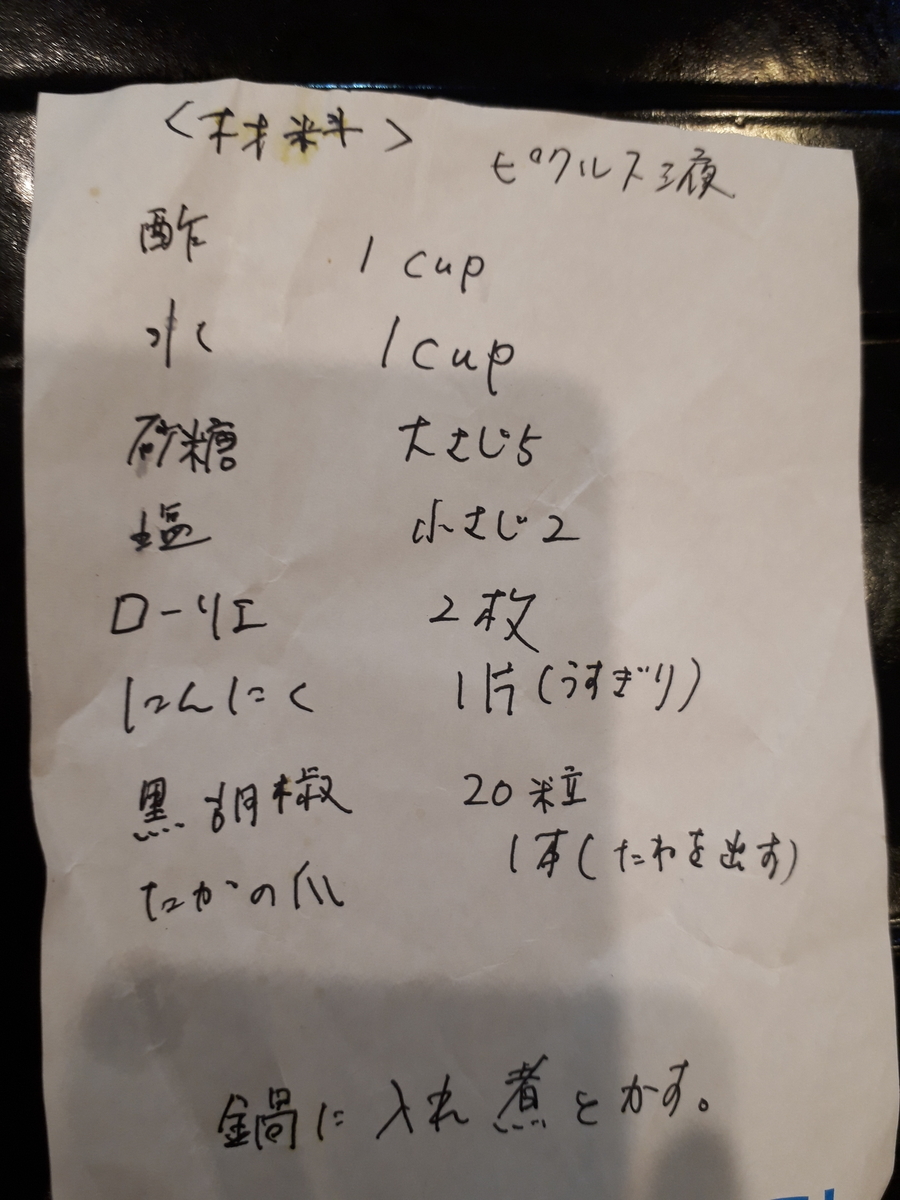 <材料>
ピクルス液
酢 1 cup
水 1 cup
砂糖 大さじ5
塩 小さじ2
ローリエ 2枚
にんにく 1片(うすぎり)
黒胡椒 20粒
たかの爪 1本(たねを出す)
鍋に入れ煮とかす。